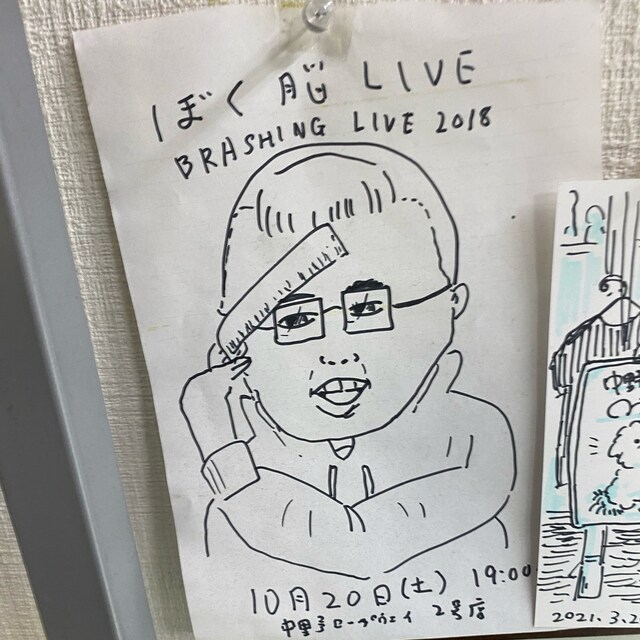 ぼく脳 LIVE
BRASHING LIVE 2018
10月20日(土) 19:00
2号店
中野
2021.3.2